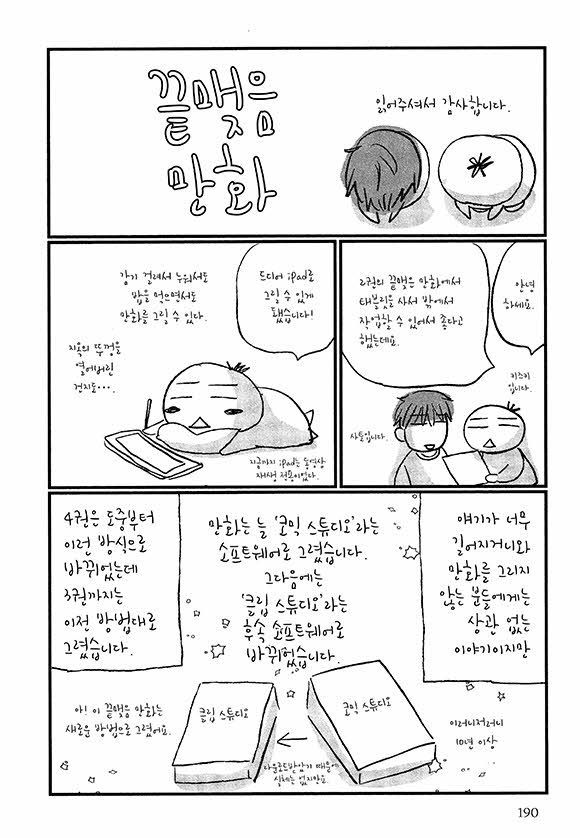 끝맺음
만화
읽어주셔서 감사합니다.
안녕
하세요.
키즈키
입니다.
2권의 끝맺은 만화에서
태블릿을 사서 밖에서
작업할 수 있어서 좋다고
했는데요.
사토입니다.
드디어 iPad로
그릴 수 있게
됐습니다!
감기 걸려서 누워서도
밥을 먹으면서도
만화를 그릴 수 있다.
지옥의 뚜껑을
열어버린
건지도….
지금까지 iPad는 동영상
재생 전용이었다.
얘기가 너무
길어지거니와
만화를 그리지
않는 분들에게는
상관 없는
이야기이지만
만화는 늘 '코믹 스튜디오'라는
소프트웨어로 그렸습니다.
그다음에는
'클립 스튜디오'라는
후속 소프트웨어로
바뀌었습니다.
4권은 도중부터
이런 방식으로
바뀌었는데
3권까지는
이전 방법대로
그렸습니다.
이러니저러니
10년 이상
코믹 스튜디오
클립 스튜디오
다운로드받았기 때문에
실체는 없지만요
아! 이 끝맺음 만화는
새로운 방법으로 그렸어요.
190